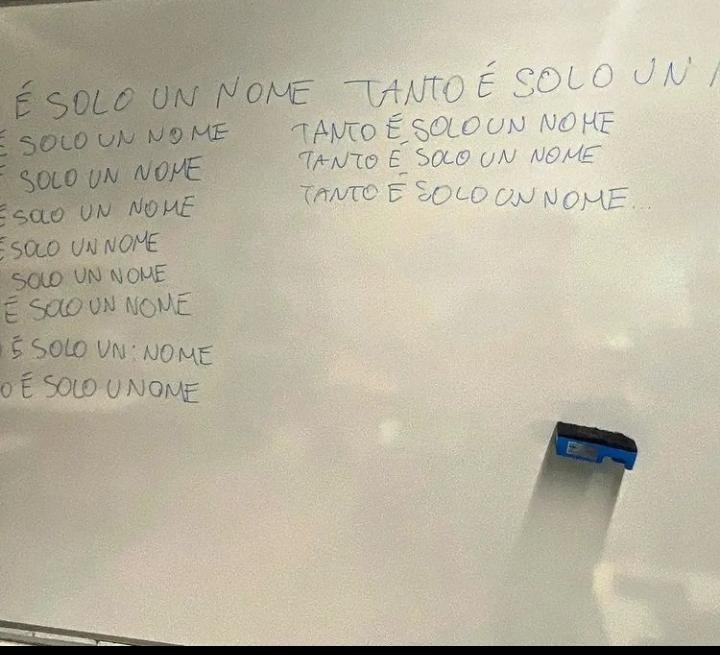 É SOLO UN NOME TANTO É SOLO UN
É SOLO UN NOME
SOLO UN NOME
É SOLO UN NOME
É SOLO UN NOME
SOLO UN NOME
É SOLO UN NOME
É SOLO UN: NOME
O É SOLO UNOME
TANTO É SOLO UN NOME
TANTO É SOLO UN NOME
TANTO É SOLO UN NOME...